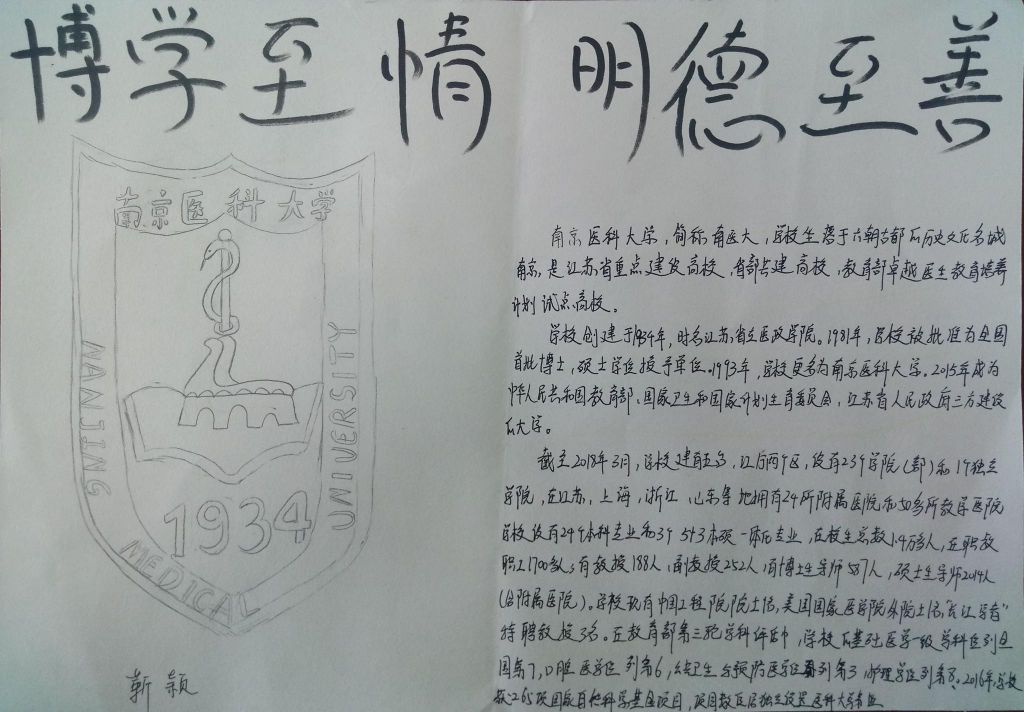 博学至情 明德至善
南京医科大学
NANJING
MEDICAL
UNIVERSITY
1934
南京医科大学,简称南医大,学校坐落于六朝古都及历史文化名城
南京,是江苏省重点建设高校,省部共建高校,教育部卓越医生教育培养
计划试点高校。
学校创建于1934年,时名江苏省立医政学院。1981年,学校被批准为全国
首批博士,硕士学位授予单位。1993年,学校更名为南京医科大学。2015年成为
中华人民共和国教育部、国家卫生和国家计划生育委员会,江苏省人民政府三方建设
大学。
截至2018年3月,学校建有五台,江宁两个区,设有23个学院(部)和1个独立
学院,在江苏,上海,浙江,山东等地拥有24所附属医院和50多所教学医院
学校设有24个本科专业和3个 5+3本硕一体化专业,在校生总数1.4万多人,在职教
职工1700多人,有教授188人,副教授252人,有博士生导师587人,硕士生导师2014人
(含附属医院)。学校现有中国工程院院士1名,美国国家医学院外院士1名,"长江学者"
特聘教授3名。在教育部第三轮学科评估中,学校 基础医学一级学科位列全
国第7,口腔医学位列第6,公共卫生与预防医学位列第3 护理学位列第8。2016年,学校
获265项国家自然科学基金项目,项目数位居独立设置医科大学
靳颖